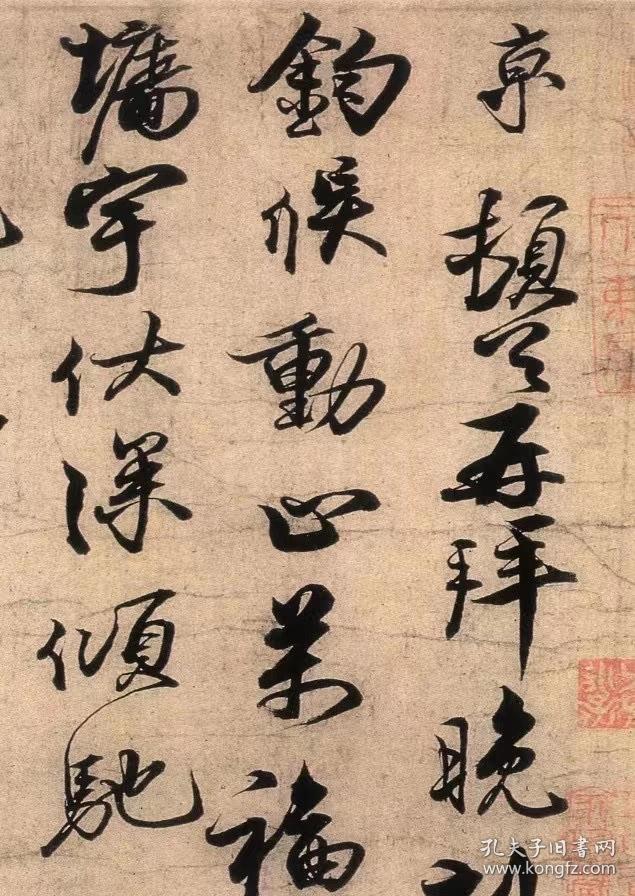 京頓首再拜晚
鈞候動止萬福
墻宇伏深傾馳
孔夫子旧書网
www.kongfz.com